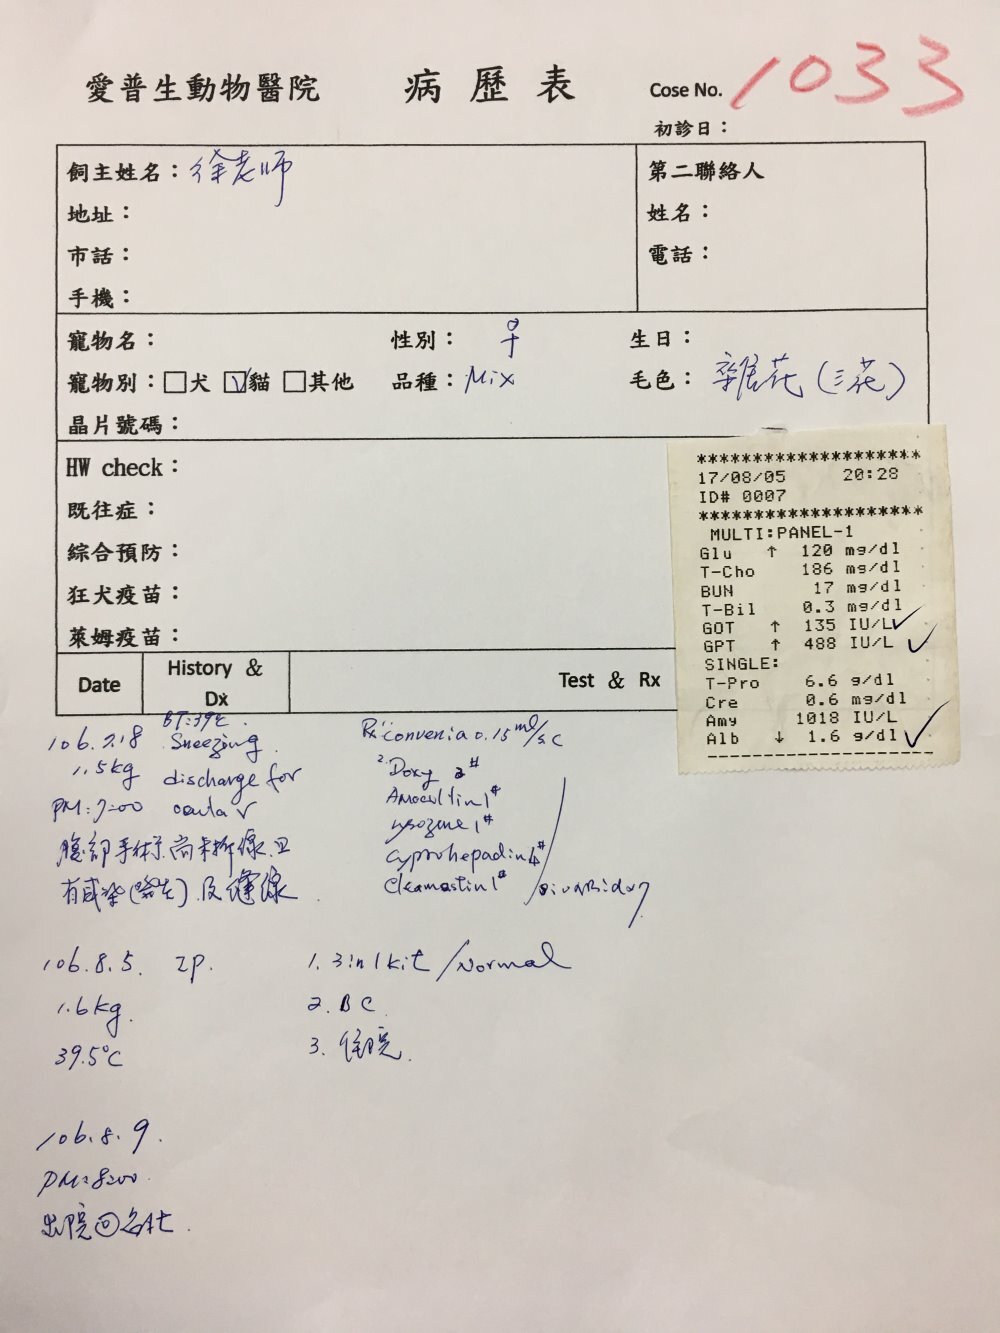 愛普生動物醫院 病歷表 Cose No. 1033
初診日：
飼主姓名：徐老師
地址：
市話：
手機：
第二聯絡人
姓名：
電話：
寵物名： 性別：♀ 生日：
寵物別：□犬 ☑貓 □其他 品種：Mix 毛色：雜花(三花)
晶片號碼：
HW check：
既往症：
綜合預防：
狂犬疫苗：
萊姆疫苗：
********************
17/08/05 20:28
ID# 0007
********************
MULTI:PANEL-1
Glu ↑ 120 mg/dl
T-Cho 186 mg/dl
BUN 17 mg/dl
T-Bil 0.3 mg/dl
GOT ↑ 135 IU/L ✓
GPT ↑ 488 IU/L ✓
SINGLE:
T-Pro 6.6 g/dl
Cre 0.6 mg/dl
Amy 1018 IU/L
Alb ↓ 1.6 g/dl ✓
Date History & Dx Test & Rx
BT:39℃.
106.7.18 Sneezing
1.5kg discharge for
PM:7:00
腹部手術尚未拆線且
有感染 及縫線
Rx: convenia 0.15 ml/sc
2. Doxy 2#
1#
lysozyme 1#
cyprohepadin
1#
106.8.5. IP.
1.6kg.
39.5℃
1. 3in1kit/Normal
2. BC
3. 住院.
106.8.9.
PM:8:00.
出院回